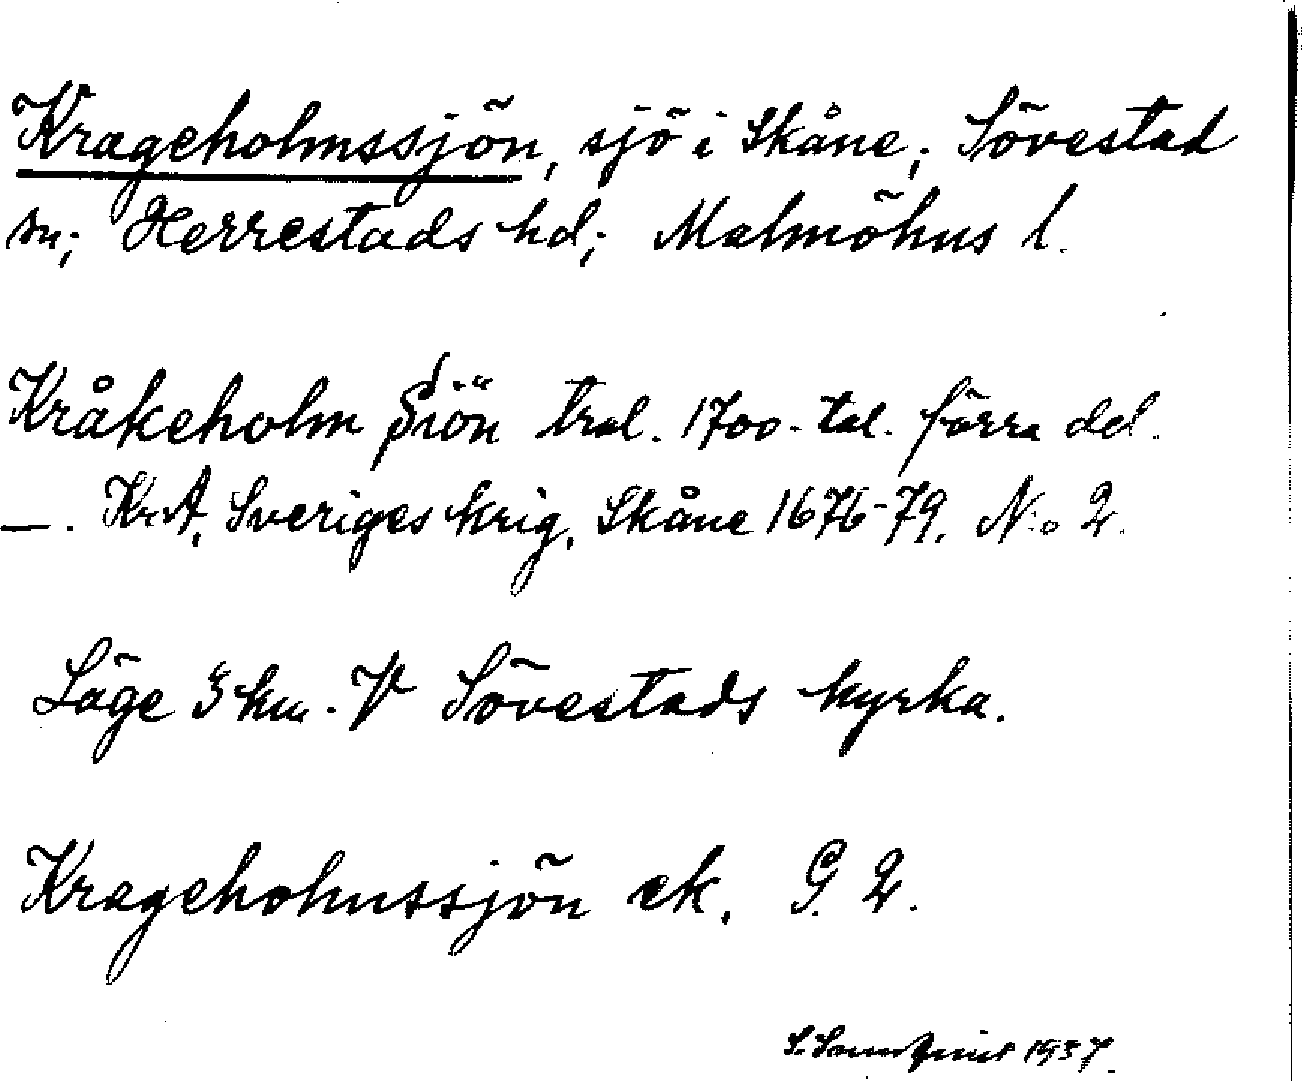 Krageholmssjön, sjö i Skåne; Sövestad
sn; Herrestads hd; Malmöhus l.
Kråkeholm Siön trol. 1700-tal. förra del.
—. KrA, Sveriges krig, Skåne 1676-79. N:o 2.
Läge 3 km. V Sövestads kyrka.
Krageholmssjön ek. G. 2.
S. 1937.